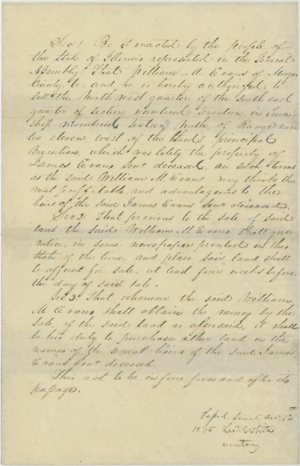 Sec 1 Be it enacted by the people of
the State of Illinois represented in the General
Assembly That William M Evans of Morgan
County be and he is hereby authorized to
sell the North west quarter of the South east
quarter of Section numbered Seventeen in town
ship numbered Sixteen North of Range num
ber eleven west of the third principal
meridian which was lately the property of
James Evans Senr deceased on such terms
as the said William M Evans may think the
most profitable and advantageous to the
heirs of the said James Evans Senr deceased.
Sec 2 That previous to the sale of said
land the said William M Evans shall give
notice, in some newspaper printed in this
State of the time, and place said land shall
be offered for sale, at least four weeks before
the day of said sale.
Sec 3 That whenever the said William
M Evans shall obtain the money by the
sale of the said land as aforesaid, it shall
be his duty to purchase other land in the
names of the several heirs of the said James
Evans Senr deceased
This act to be in force from and after its
passage.